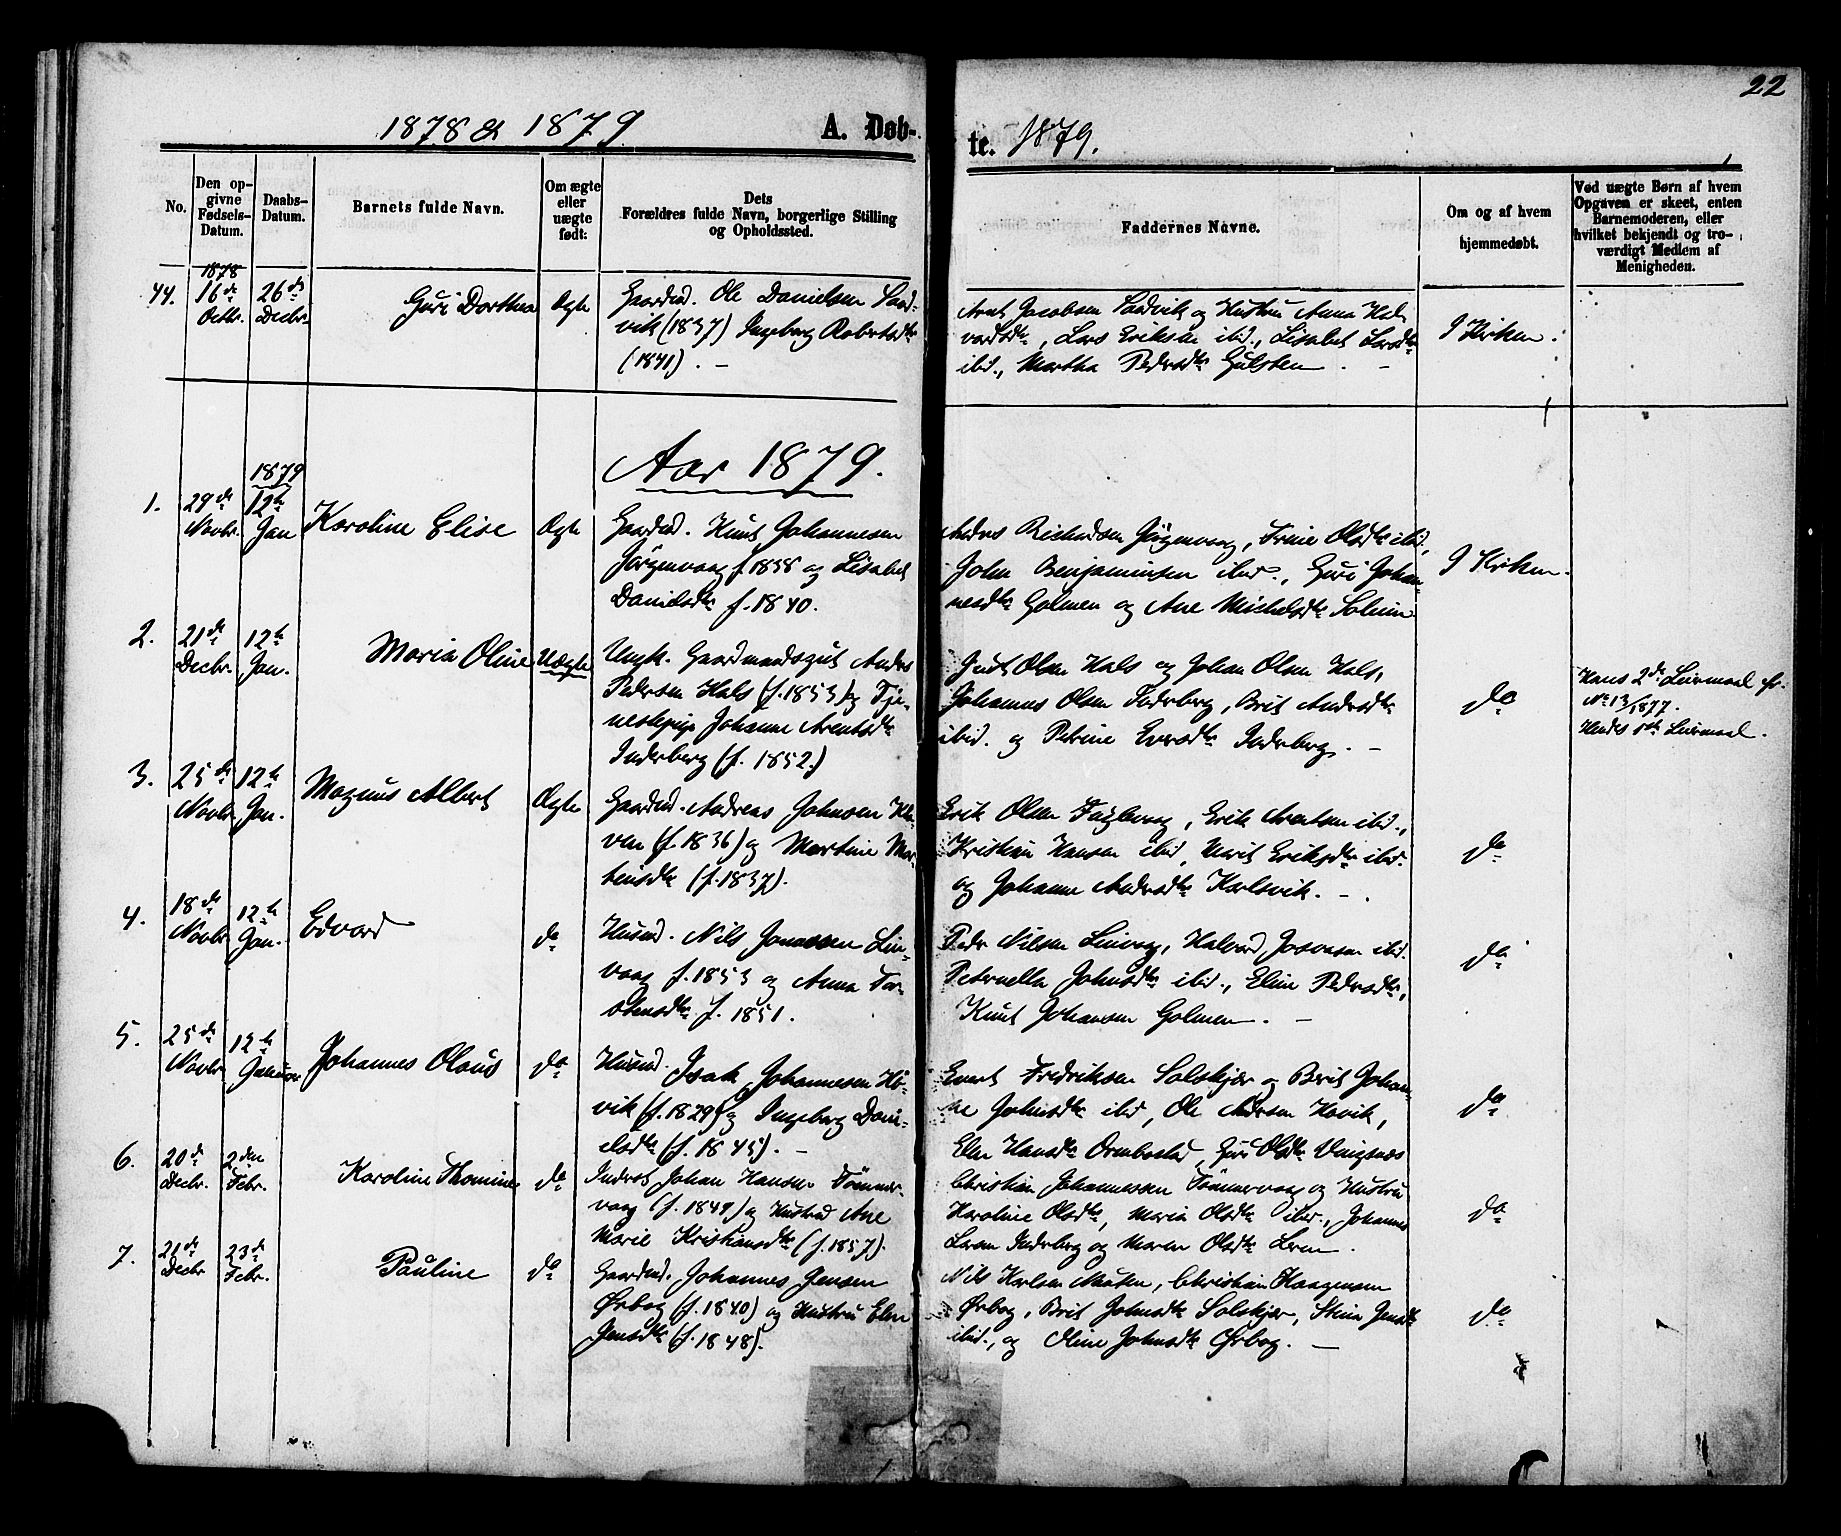 22
1878 & 1879
A. Døb-
te. 1879.
No.
Den op-
givne
Fødsels-
Datum.
Daabs-
Datum.
Barnets fulde Navn.
Om ægte
eller
uægte
født:
Dets
Forældres fulde Navn, borgerlige Stilling
og Opholdssted.
Faddernes Navne.
Om og af hvem
hjemmedøbt.
Ved uægte Børn af hvem
Opgaven er skeet, enten
Barnemoderen, eller
hvilket bekjendt og tro-
værdigt Medlem af
Menigheden.
44.
1878
16de
Octbr.
26de
Decbr.
Guri Dorthea
Ægte
Gaardmd. Ole Danielsen Sand-
vik (1837) Ingeborg Robertsdtr
(1841). -
Arnt Jacobsen Sandvik og Hustru Anna Hal-
vordsdtr, Lars Eriksen ibid., Lisabet Larsdtr
ibid., Martha Pedersdtr Gulsten. -
I Kirken.
Aar 1879.
1.
29de
Novbr.
1879
12te
Jan
Karoline Elise
Ægte
Gaardmd. Knut Johannesen
Jørgenvaag f. 1838 og Lisabet
Danielsdtr f. 1840.
Anders Richardsen Jørgenvaag, Olsdtr ibid,
John Benjaminsen ibid., Guri Johan-
nesdtr Golmen og Ane Michelsdtr Solum
I Kirken.
2.
21de
Decbr.
12te
Jan.
Maria Oline
Uægte
Ungk. Gaardmandsgut Anders
Pedersen Hals (f. 1853) og Tje-
nestepige Johanne Arentsdtr
Inderberg (f. 1852.)
Olsen Hals og Johan Olsen Hals,
Johannes Olsen Inderberg, Brit Andersdtr
ibid. og Petrine Evensdtr Inderberg. -
do
Hans 2det Leiermaal cfr.
No 13/1877.
Hendes 1ste Leiermaal.
3.
25de
Novbr.
12te
Jan.
Magnus Albert
Ægte
Gaardmd. Andreas Johnsen Kle-
ven (f. 1836) og Martine Mor-
tensdtr (f. 1837).
Erik Olsen Fuglevaag, Erik Arentsen ibid.,
Kristian Hansen ibid, Marit Eriksdtr ibid.
og Johanne Andersdtr Karlsvik. -
do
4.
18de
Novbr.
12te
Jan.
Edvard
do
Husmd. Nils Jonassen Lin-
vaag f. 1853 og Anna Tor-
stensdtr f. 1851.
Peder Nilsen Linvaag, Halvard Josvasen ibid.
Peternella Johnsdtr ibid., Eline Pedersdtr,
Knut Johansen Golmen. -
do
5.
25de
Novbr.
12te
Januar
Johannes Olaus
do
Husmd. Isak Johannesen Hø-
vik (f. 1829) og Ingeborg Dani-
elsdtr (f. 1845). -
Evert Fredriksen Solskjær og Berit Johan-
ne Johnsdtr ibid, Ole Andersen Høvik,
Elen Hansdtr Ormbostad, Guri Olsdtr Vingsnæs
do
6.
20de
Decbr.
2den
Febr.
Karoline Thomine
do
Inderst Johan Hansen Tømmer-
vaag (f. 1849) og Hustru Ane
Marie Kristiansdtr (f. 1857).
Christian Johannessen Tømmervaag og Hustru
Karoline Olsdtr, Maria Olsdtr ibid., Johannes
Larsen Inderberg og Maren Olsdtr Leren.
do
7.
21de
Decbr
23de
Febr.
Pauline
do
Gaardmd. Johannes Jensen
Ørbog (f. 1840) og Hustru Elen
Jensdtr (f. 1848).
Nils Karlsen, Christian Haagensen
Ørbog, Brit Johnsdtr Solskjær, Stina Jensdtr
ibid., og Oline Johnsdtr Ørbog. -
do